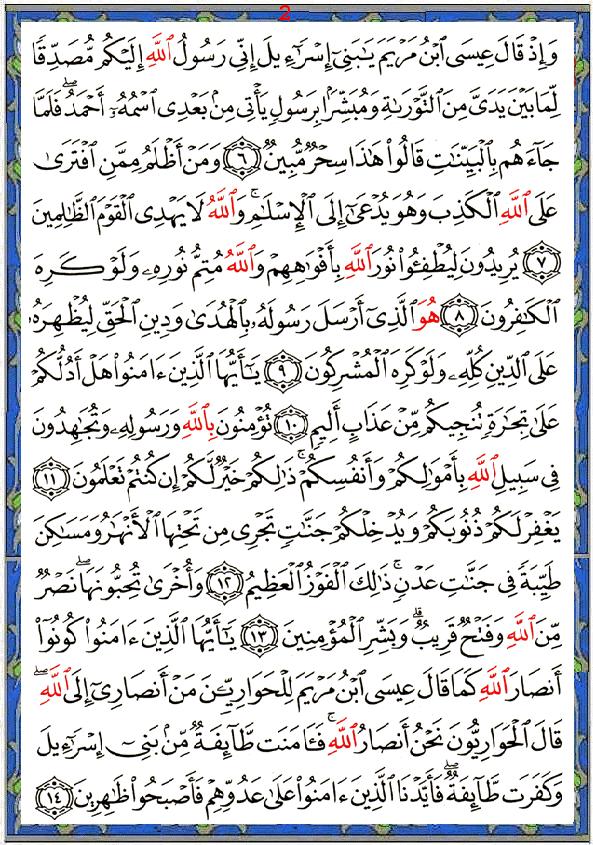 2
وَإِذْ قَالَ عِيسَى ٱبْنُ مَرْيَمَ يَٰبَنِىٓ إِسْرَٰٓءِيلَ إِنِّى رَسُولُ ٱللَّهِ إِلَيْكُم مُّصَدِّقًا
لِّمَا بَيْنَ يَدَىَّ مِنَ ٱلتَّوْرَىٰةِ وَمُبَشِّرًۢا بِرَسُولٍ يَأْتِى مِنۢ بَعْدِى ٱسْمُهُۥٓ أَحْمَدُ ۖ فَلَمَّا
جَآءَهُم بِٱلْبَيِّنَٰتِ قَالُوا۟ هَٰذَا سِحْرٌ مُّبِينٌ ﴿٦﴾ وَمَنْ أَظْلَمُ مِمَّنِ ٱفْتَرَىٰ
عَلَى ٱللَّهِ ٱلْكَذِبَ وَهُوَ يُدْعَىٰٓ إِلَى ٱلْإِسْلَٰمِ ۚ وَٱللَّهُ لَا يَهْدِى ٱلْقَوْمَ ٱلظَّٰلِمِينَ
﴿٧﴾ يُرِيدُونَ لِيُطْفِـُٔوا۟ نُورَ ٱللَّهِ بِأَفْوَٰهِهِمْ وَٱللَّهُ مُتِمُّ نُورِهِۦ وَلَوْ كَرِهَ
ٱلْكَٰفِرُونَ ﴿٨﴾ هُوَ ٱلَّذِىٓ أَرْسَلَ رَسُولَهُۥ بِٱلْهُدَىٰ وَدِينِ ٱلْحَقِّ لِيُظْهِرَهُۥ
عَلَى ٱلدِّينِ كُلِّهِۦ وَلَوْ كَرِهَ ٱلْمُشْرِكُونَ ﴿٩﴾ يَٰٓأَيُّهَا ٱلَّذِينَ ءَامَنُوا۟ هَلْ أَدُلُّكُمْ
عَلَىٰ تِجَٰرَةٍ تُنجِيكُم مِّنْ عَذَابٍ أَلِيمٍ ﴿١٠﴾ تُؤْمِنُونَ بِٱللَّهِ وَرَسُولِهِۦ وَتُجَٰهِدُونَ
فِى سَبِيلِ ٱللَّهِ بِأَمْوَٰلِكُمْ وَأَنفُسِكُمْ ۚ ذَٰلِكُمْ خَيْرٌ لَّكُمْ إِن كُنتُمْ تَعْلَمُونَ ﴿١١﴾
يَغْفِرْ لَكُمْ ذُنُوبَكُمْ وَيُدْخِلْكُمْ جَنَّٰتٍ تَجْرِى مِن تَحْتِهَا ٱلْأَنْهَٰرُ وَمَسَٰكِنَ
طَيِّبَةً فِى جَنَّٰتِ عَدْنٍ ۚ ذَٰلِكَ ٱلْفَوْزُ ٱلْعَظِيمُ ﴿١٢﴾ وَأُخْرَىٰ تُحِبُّونَهَا ۖ نَصْرٌ
مِّنَ ٱللَّهِ وَفَتْحٌ قَرِيبٌ ۗ وَبَشِّرِ ٱلْمُؤْمِنِينَ ﴿١٣﴾ يَٰٓأَيُّهَا ٱلَّذِينَ ءَامَنُوا۟ كُونُوٓا۟
أَنصَارَ ٱللَّهِ كَمَا قَالَ عِيسَى ٱبْنُ مَرْيَمَ لِلْحَوَارِيِّۦنَ مَنْ أَنصَارِىٓ إِلَى ٱللَّهِ ۖ
قَالَ ٱلْحَوَارِيُّونَ نَحْنُ أَنصَارُ ٱللَّهِ ۖ فَـَٔامَنَت طَّآئِفَةٌ مِّنۢ بَنِىٓ إِسْرَٰٓءِيلَ
وَكَفَرَت طَّآئِفَةٌ ۖ فَأَيَّدْنَا ٱلَّذِينَ ءَامَنُوا۟ عَلَىٰ عَدُوِّهِمْ فَأَصْبَحُوا۟ ظَٰهِرِينَ ﴿١٤﴾